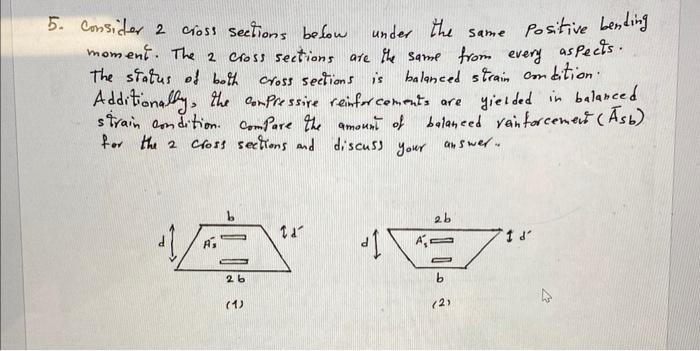 5. Consider 2 cross sections below under the same Positive bending
moment. The 2 cross sections are the same from every aspects.
The status of both cross sections is balanced strain condition.
Additionally, the compressive reinforcements are yielded in balanced
strain condition. Compare the amount of balanced reinforcement (Āsb)
for the 2 cross sections and discuss your answer.
b
d A's d'
2b
(1)
2b
d A's d'
b
(2)